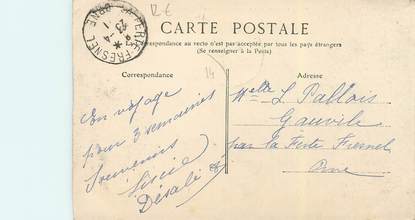 CARTE POSTALE
La correspondance au recto n'est pas acceptée par tous les pays étrangers
(Se renseigner à la Poste)
Correspondance
Adresse
LA FERTÉ-FRESNEL
ORNE
En voyage
pour 3 semaines
Souvenirs
Désalé
Melle L Pallois
Gauville
par la Ferté Fresnel
Orne
14